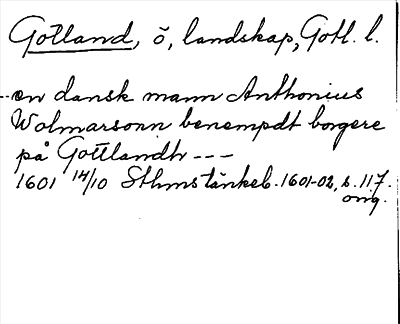 Gotland, ö, landskap, Gotl. l.
--en dansk mann Anthonius
Wolmarsonn benempdt borgere
på Gottlandh ---
1601 14/10 Sthmstänkeb. 1601-02, s. 117.
orig.